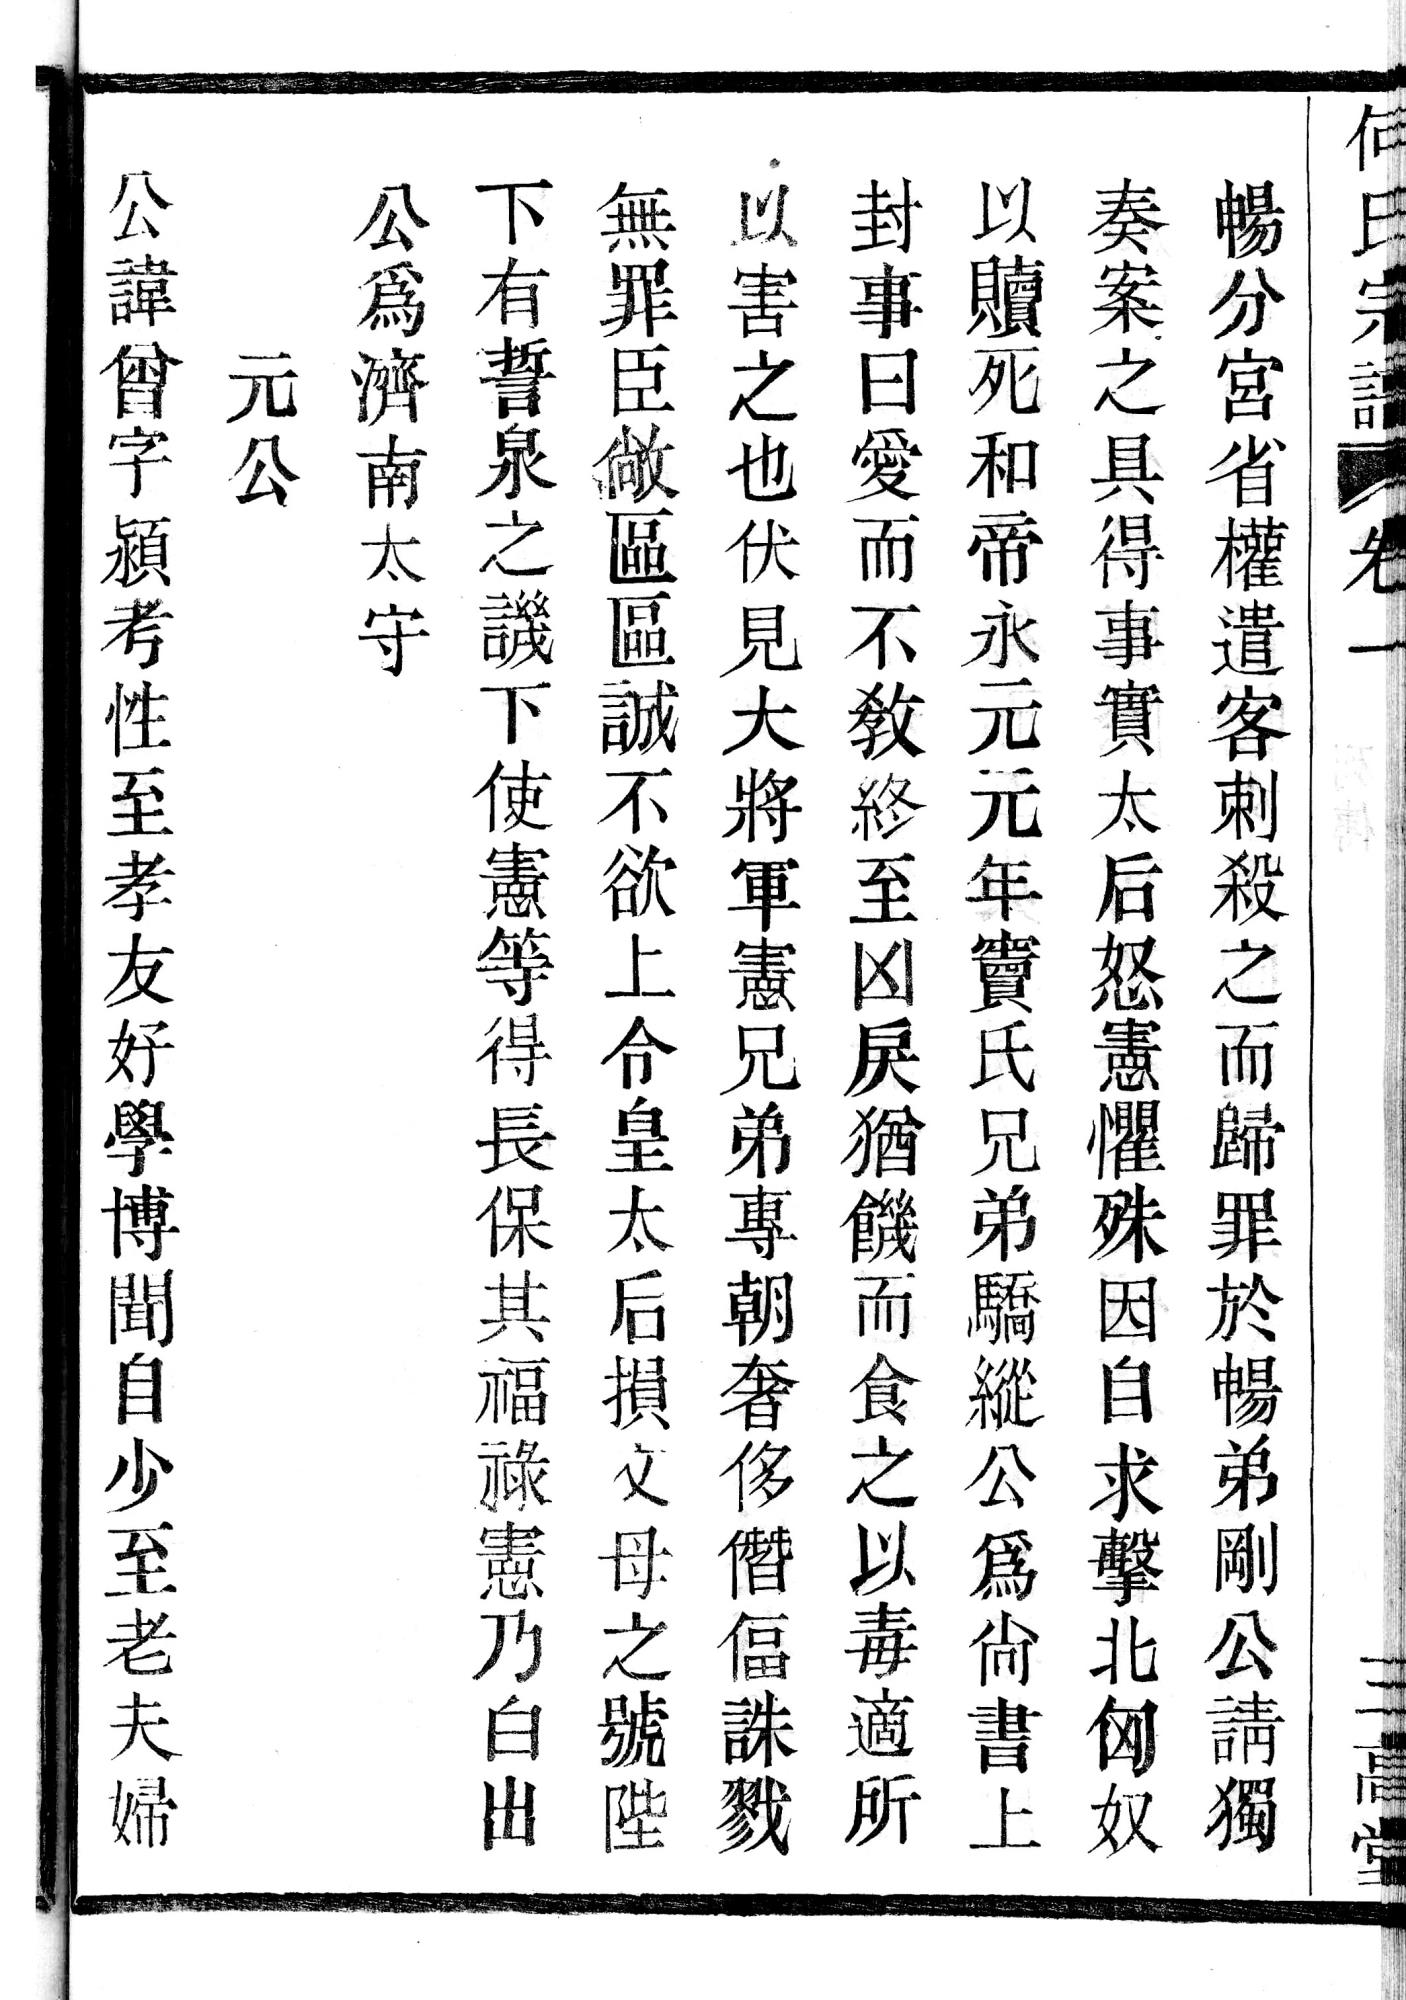 何氏宗譜 卷一 三高堂
暢分宮省權遣客刺殺之而歸罪於暢弟剛公請獨
奏案之具得事實太后怒憲懼殊因自求擊北匈奴
以贖死和帝永元元年竇氏兄弟驕縱公爲尙書上
封事曰愛而不敎終至凶戾猶饑而食之以毒適所
以害之也伏見大將軍憲兄弟專朝奢侈僭偪誅戮
無罪臣敞區區誠不欲上令皇太后損文母之號陛
下有誓泉之譏下使憲等得長保其福祿憲乃白出
公爲濟南太守
元公
公諱曾字潁考性至孝友好學博聞自少至老夫婦